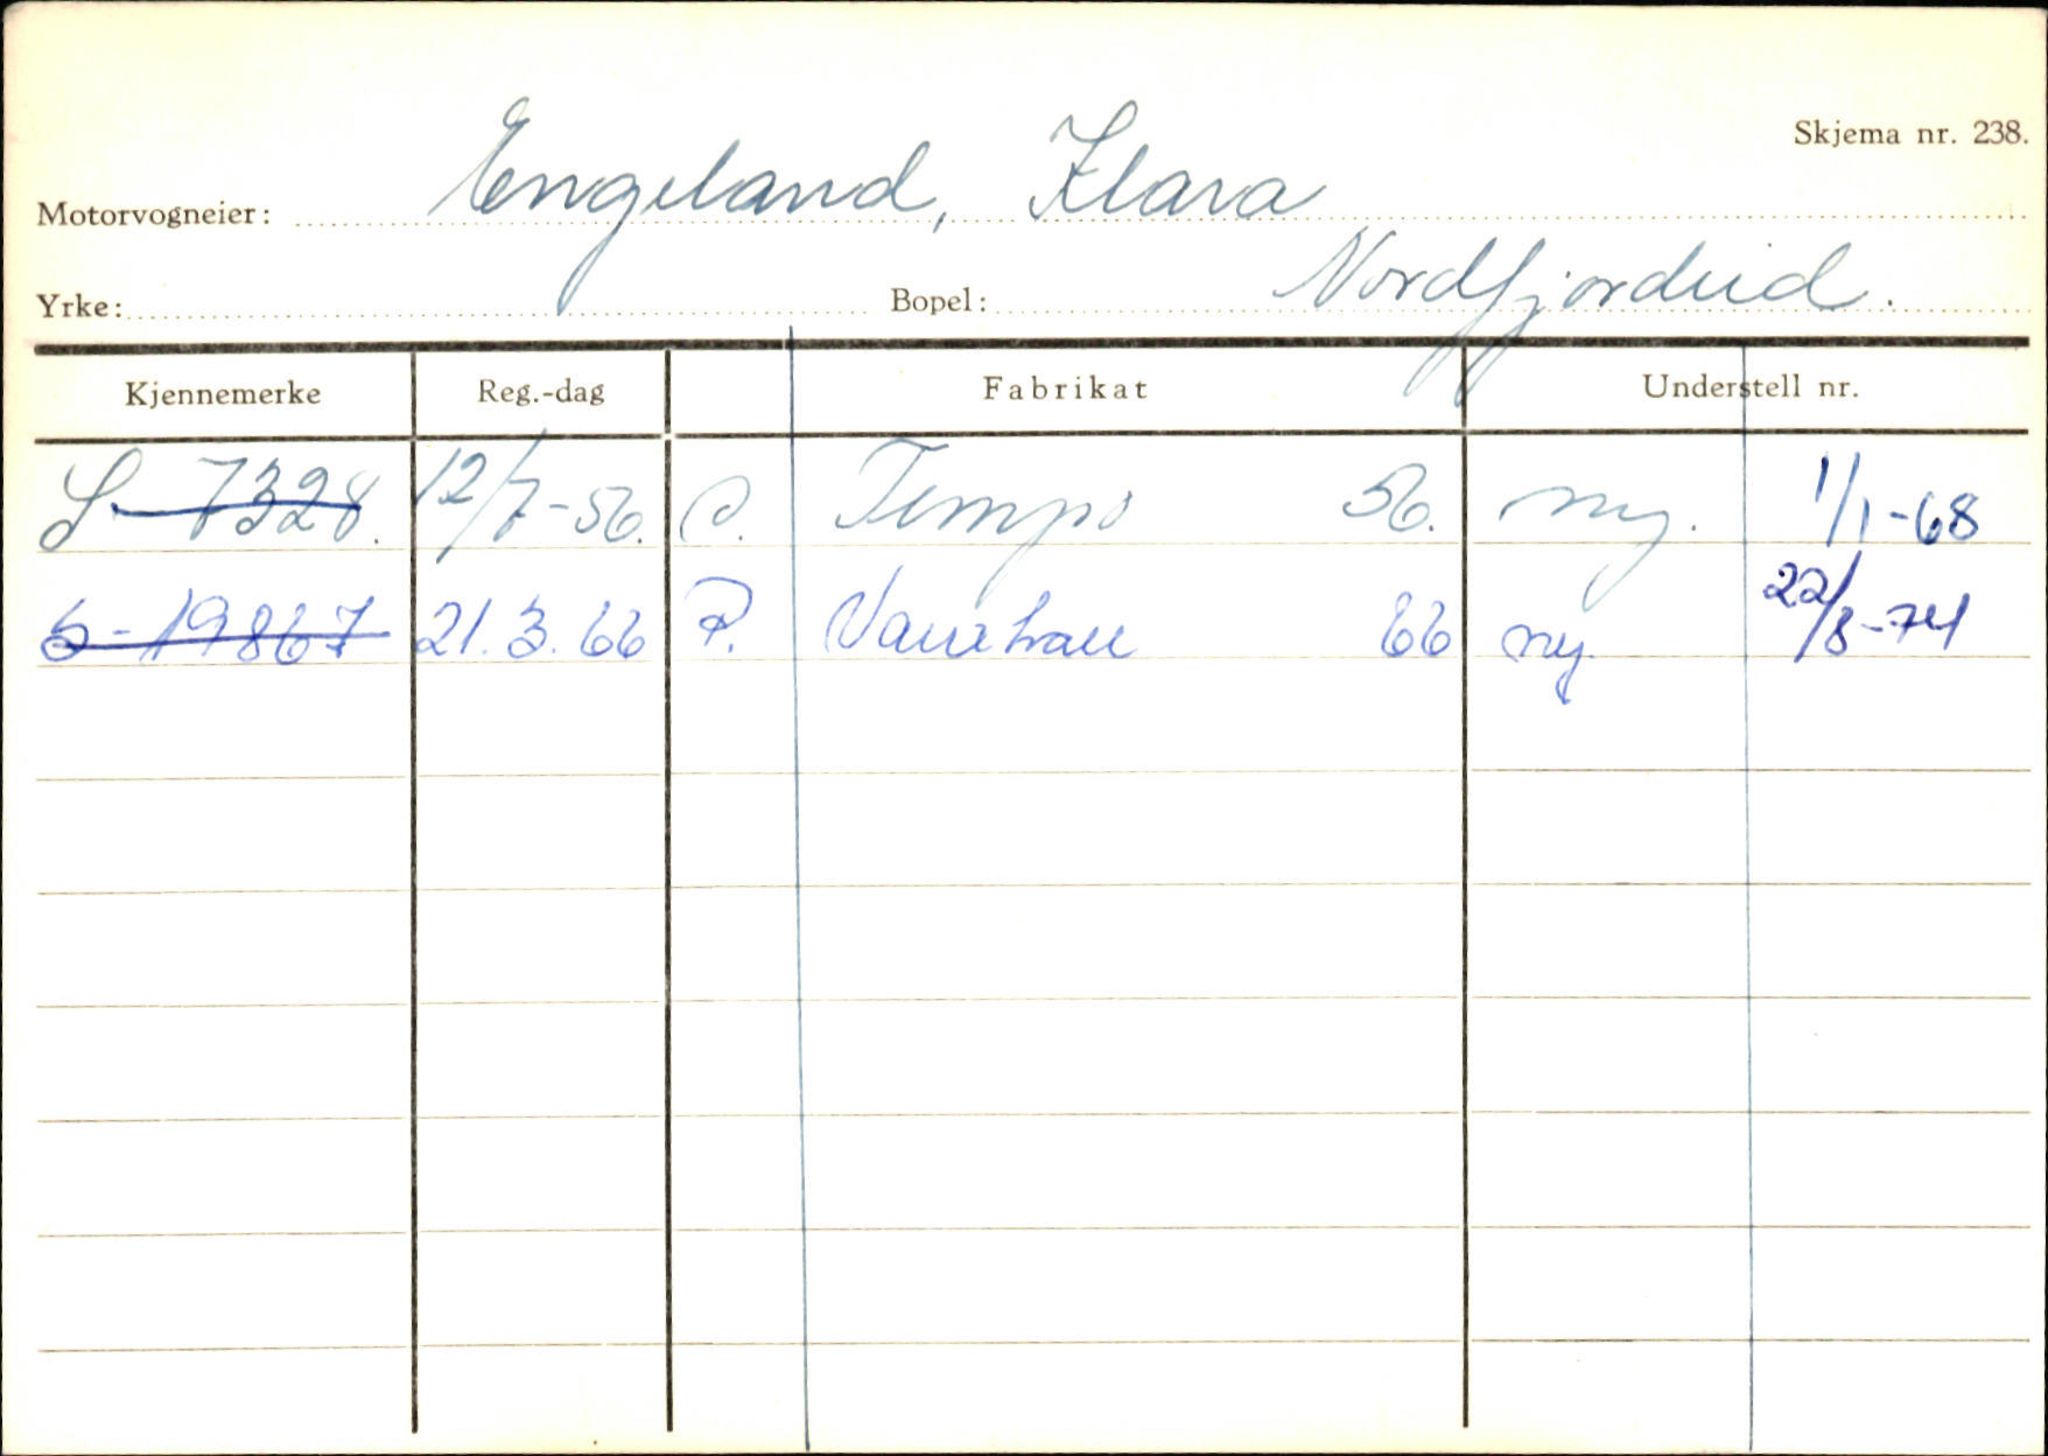 Skjema nr. 238.
Motorvogneier: Engeland, Klara
Yrke: Bopel: Nordfjordeid.
Kjennemerke Reg.-dag Fabrikat Understell nr.
S-7328. 12/7-56. Tempo 56. ny. 1/1-68
S-19867 21.3.66 P. Vauxhall 66 ny. 22/8-74